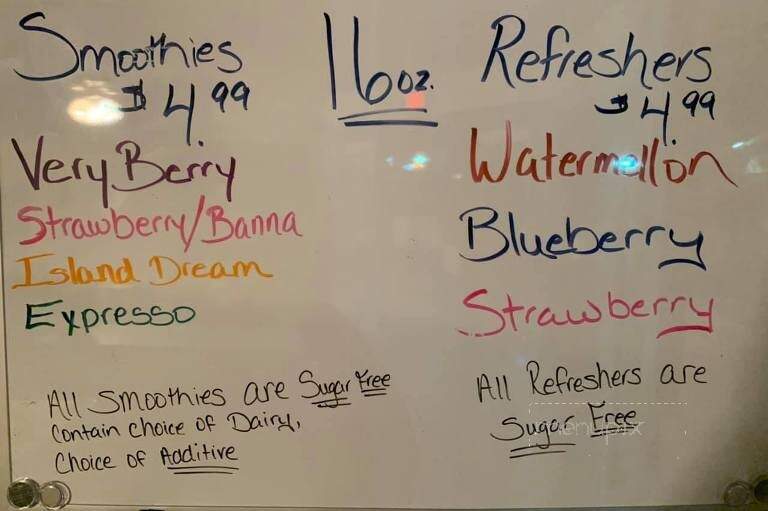 Smoothies
$4.99
Very Berry
Strawberry/Banna
Island Dream
Expresso
All Smoothies are Sugar Free
Contain choice of Dairy,
Choice of Additive
16 oz.
Refreshers
$4.99
Watermellon
Blueberry
Strawberry
All Refreshers are
Sugar Free
menupix